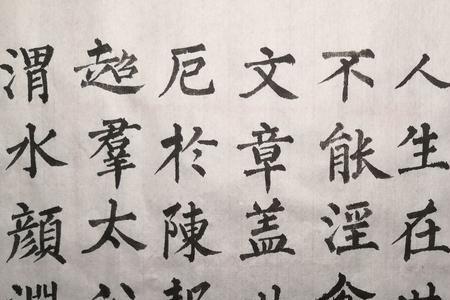 人生在
不能淫
文章盖
厄於陳
超羣太
渭水顔